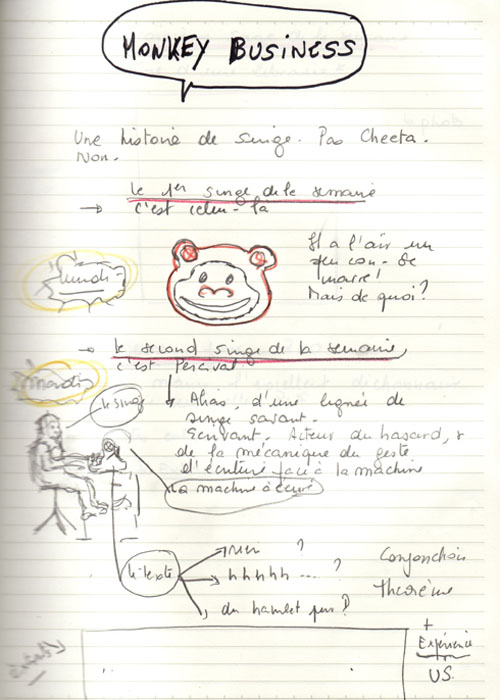 MONKEY BUSINESS
Une histoire de singe. Pas Cheeta.
Non.
le 1er singe de la semaine
→ c'est celui-là
lundi
Il a l'air un
peu con. Se
marre!
Mais de quoi?
→ le second singe de la semaine,
c'est Percival
mardi
le singe
Alias, d'une lignée de
singe savant.
Ecrivant. Acteur du hasard, &
de la mécanique du geste
d'écriture face à la machine
la machine à écrire
le texte
rien ?
hhhhh .... ?
du hamlet pur?
Théorème
+
Expérience
US.